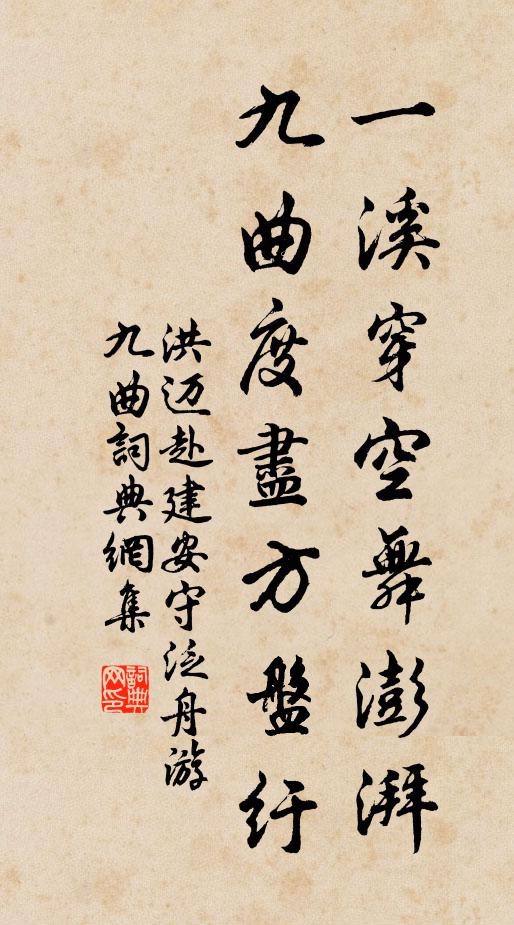 一溪穿空舞澎湃
九曲度盡方盤紆
洪迈赴建安守泛舟游
九曲詞典網集
詞典
网印